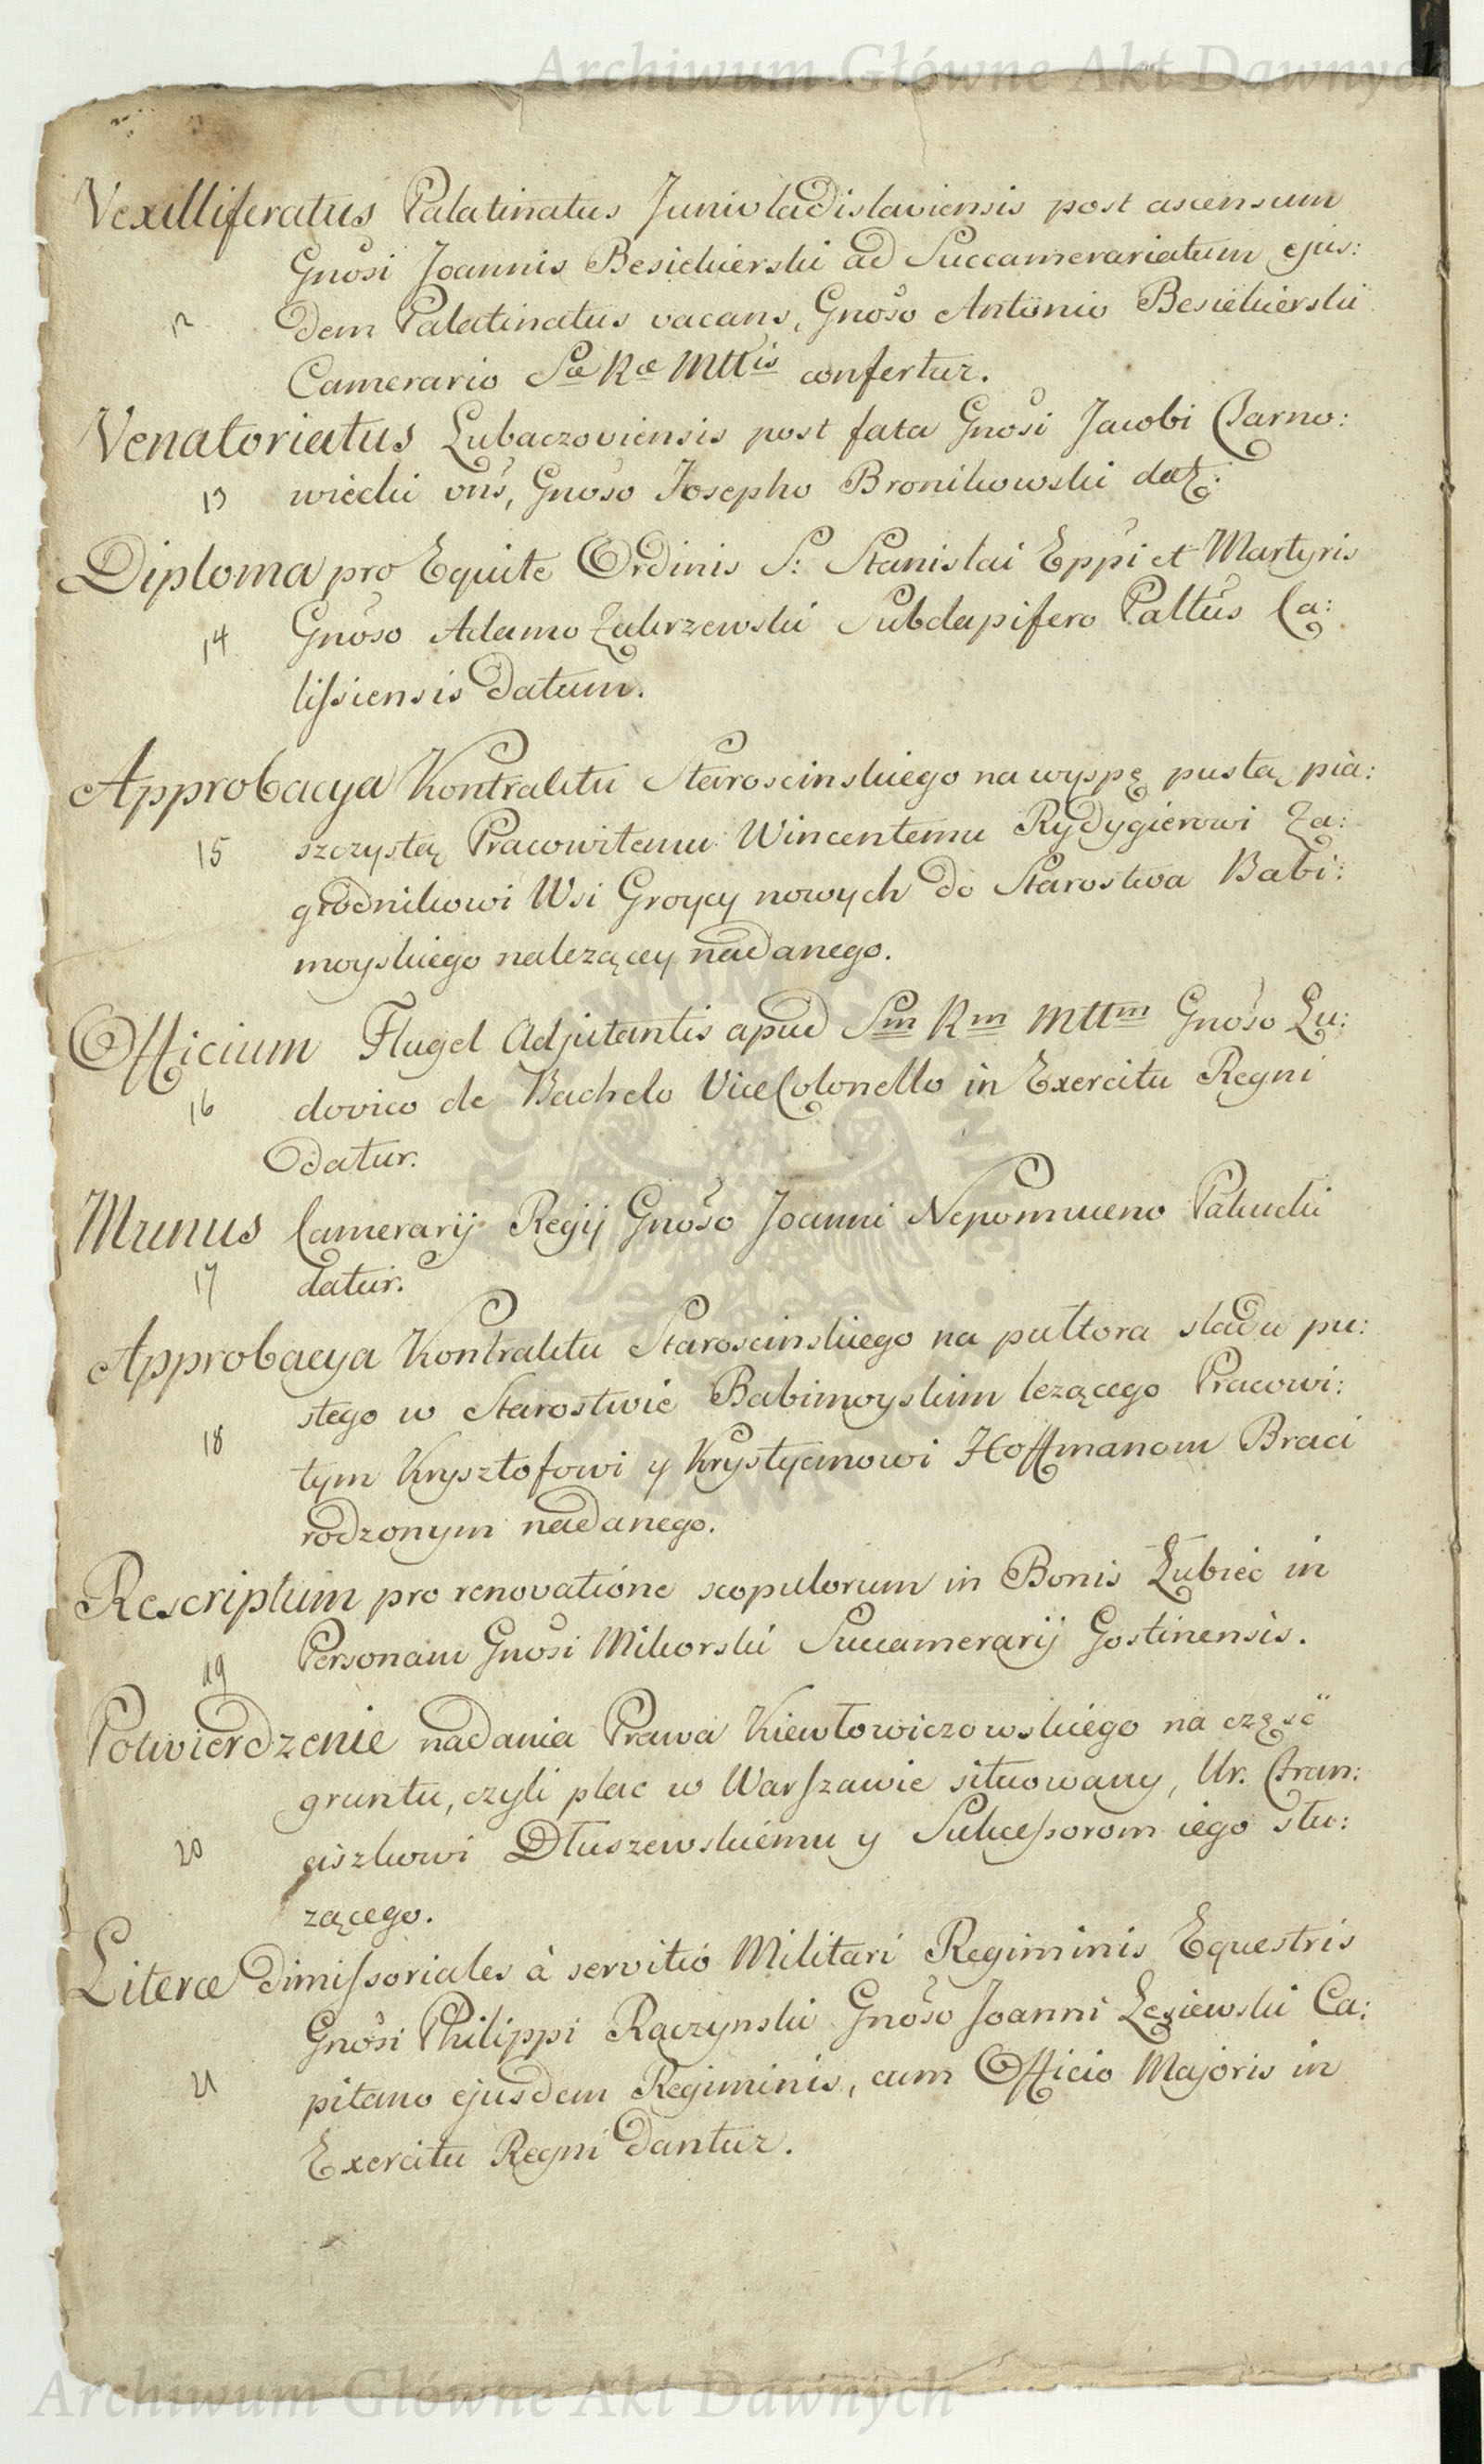 Archiwum Główne Akt Dawnych
Vexilliferatus Palatinatus Junivladislaviensis post ascensum
Gnosi Joannis Besiekierski ad Succamerariatum ejus:
12 dem Palatinatus vacans, Gnoso Antonio Besiekierski
Camerario Sæ Ræ Mttis confertur.
Venatoriatus Lubaczoviensis post fata Gnosi Jacobi Czarno:
13 wiecki vus, Gnoso Josepho Bronikowski datr.
Diploma pro Equite Ordinis S: Stanislai Eppi et Martyris
14 Gnoso Adamo Zakrzewski Subdapifero Palttus Ca:
lissiensis datum.
Approbacya Kontraktu Staroscinskiego na wyspę pustą pia:
15 szczystą Pracowitemu Wincentemu Rydygierowi Za:
grodnikowi Wsi Groycy nowych do Starostwa Babi:
moyskiego nalezącey nadanego.
Officium Flugel Adjutantis apud Sm Rm Mttm Gnoso Lu:
16 dovico de Bachelo ViceColonello in Exercitu Regni
datur.
Munus Camerarij Regij Gnoso Joanni Nepomuceno Pakucki
17 datur.
Approbacya Kontraktu Staroscinskiego na pułtora sladu pu:
stego w Starostwie Babimoyskim lezącego Pracowi:
18 tym Krysztofowi y Krystyanowi Hoffmanom Braci
rodzonym nadanego.
Rescriptum pro renovatione scopulorum in Bonis Łubiec in
19 Personam Gnosi Mikorski Succamerarij Gostinensis.
Potwierdzenie nadania Prawa Kiewłowiczowskiego na część
gruntu, czyli plac w Warszawie situowany, Ur. Fran:
20 ciszkowi Dłuszewskiemu y Sukcessorom iego słu:
zącego.
Literæ dimissoriales à servitio Militari Regiminis Equestris
Gnosi Philippi Raczynski Gnoso Joanni Lesiewski Ca:
21 pitano ejusdem Regiminis, cum Officio Majoris in
Exercitu Regni dantur.
Archiwum Główne Akt Dawnych